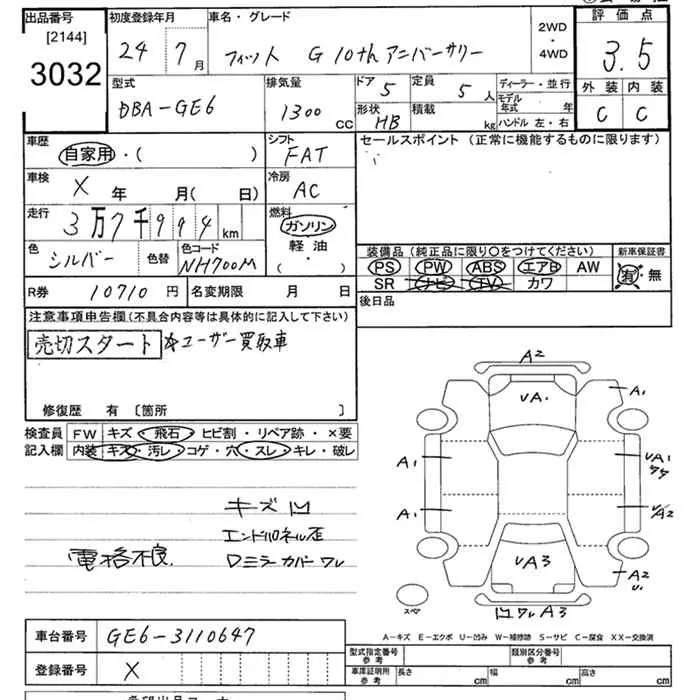 出品番号 初度登録年月 車名・グレード 2WD・4WD 評価点
[2144]
3032 24 7月 フィット G 10th アニバーサリー 3.5
型式 排気量 ドア 定員 ディーラー・並行 外装 内装
DBA-GE6 1300 CC 5 5人 モデル年式 年 C C
形状 HB 積載 kg ハンドル 左・右
車歴 シフト セールスポイント (正常に機能するものに限ります)
自家用・( ) FAT
車検 冷房
X 年 月( 日) AC
走行 燃料
3万7千994km ガソリン
色 色替 色コード 軽油 装備品 (純正品に限り〇をつけてください) 新車保証書
シルバー NH700M (・) PS PW ABS エアB AW 有・無
SR ナビ TV カワ
R券 10710円 名変期限 月 日 後日品
注意事項申告欄(不具合内容等は具体的に記入して下さい)
売切スタート ☆ユーザー買取車
修復歴 有 〔箇所 〕
検査員 FW キズ・飛石・ヒビ割・リペア跡・×要
記入欄 内装 キズ・汚レ・コゲ・穴・スレ・キレ・破レ
キズ凹
エンドパネル歪
電格不良 Dミラーカバーワレ
A2
VA1
A1
A1
VA1
ワワ
A1
A2
VA3
A2
U1
スペア
凹ワレA3
A-キズ E-エクボ U-凹み W-補修跡 S-サビ C-腐食 XX-交換済
車台番号 GE6-3110647
型式指定番号 参考 類別区分番号 参考
登録番号 X
車庫証明用 参考 長さ cm 幅 cm 高さ cm